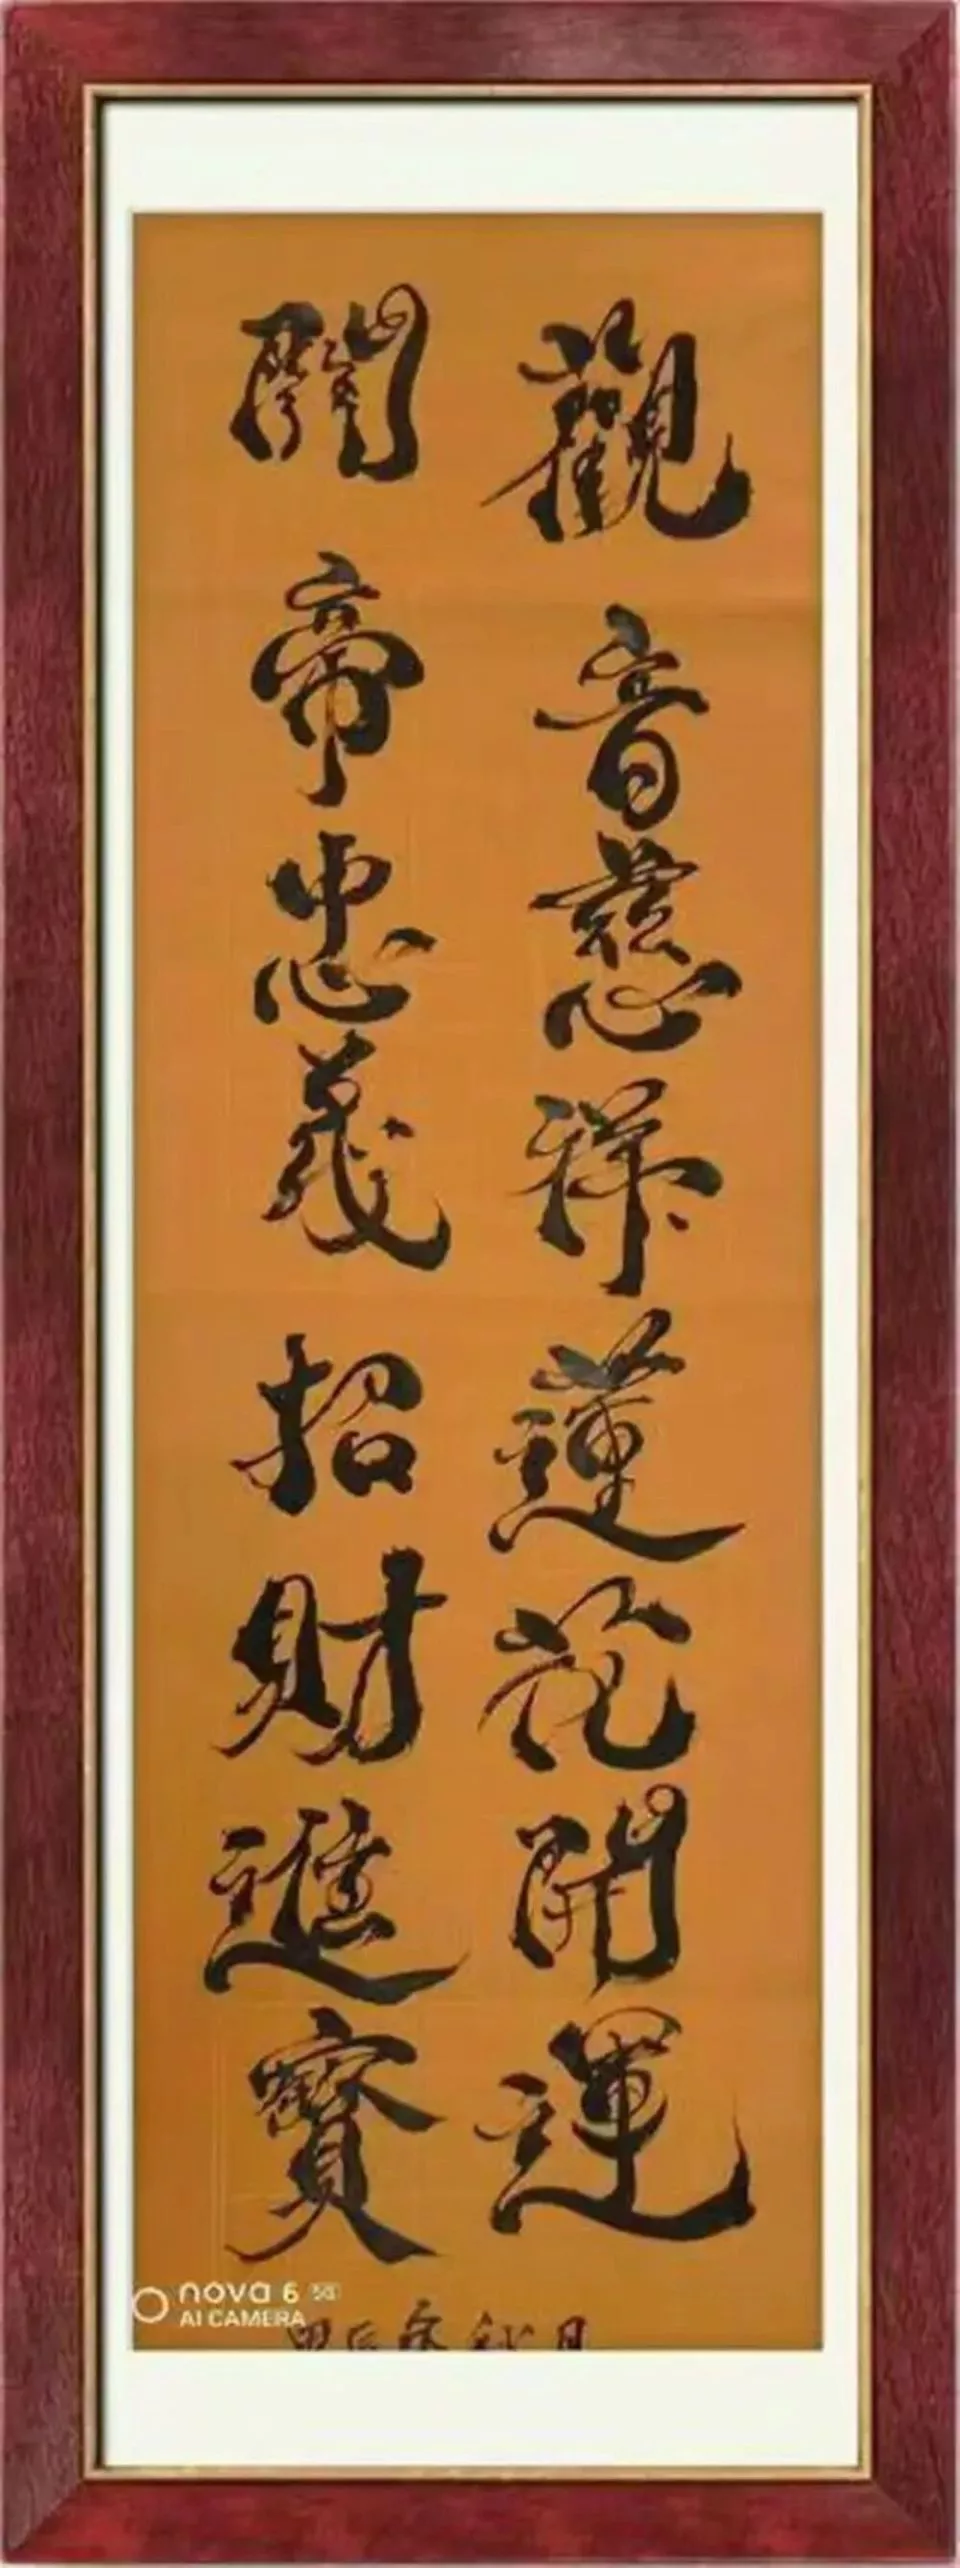 觀音慈祥蓮花開運
關帝忠義招財進寶
nova 6 5G
AI CAMERA